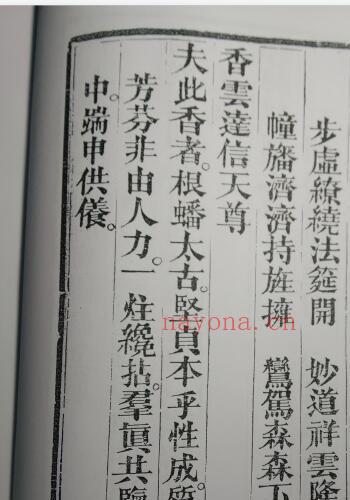 步虛繚繞法筵開　妙道祥雲隆
幢旛濟濟持旌擁　鸞駕森森下
香雲達信天尊
夫此香者。根蟠太古。堅貞本乎性成。
芳芬非由人力。一炷纔拈。羣眞共臨
中端申供儀。
nayona.cn